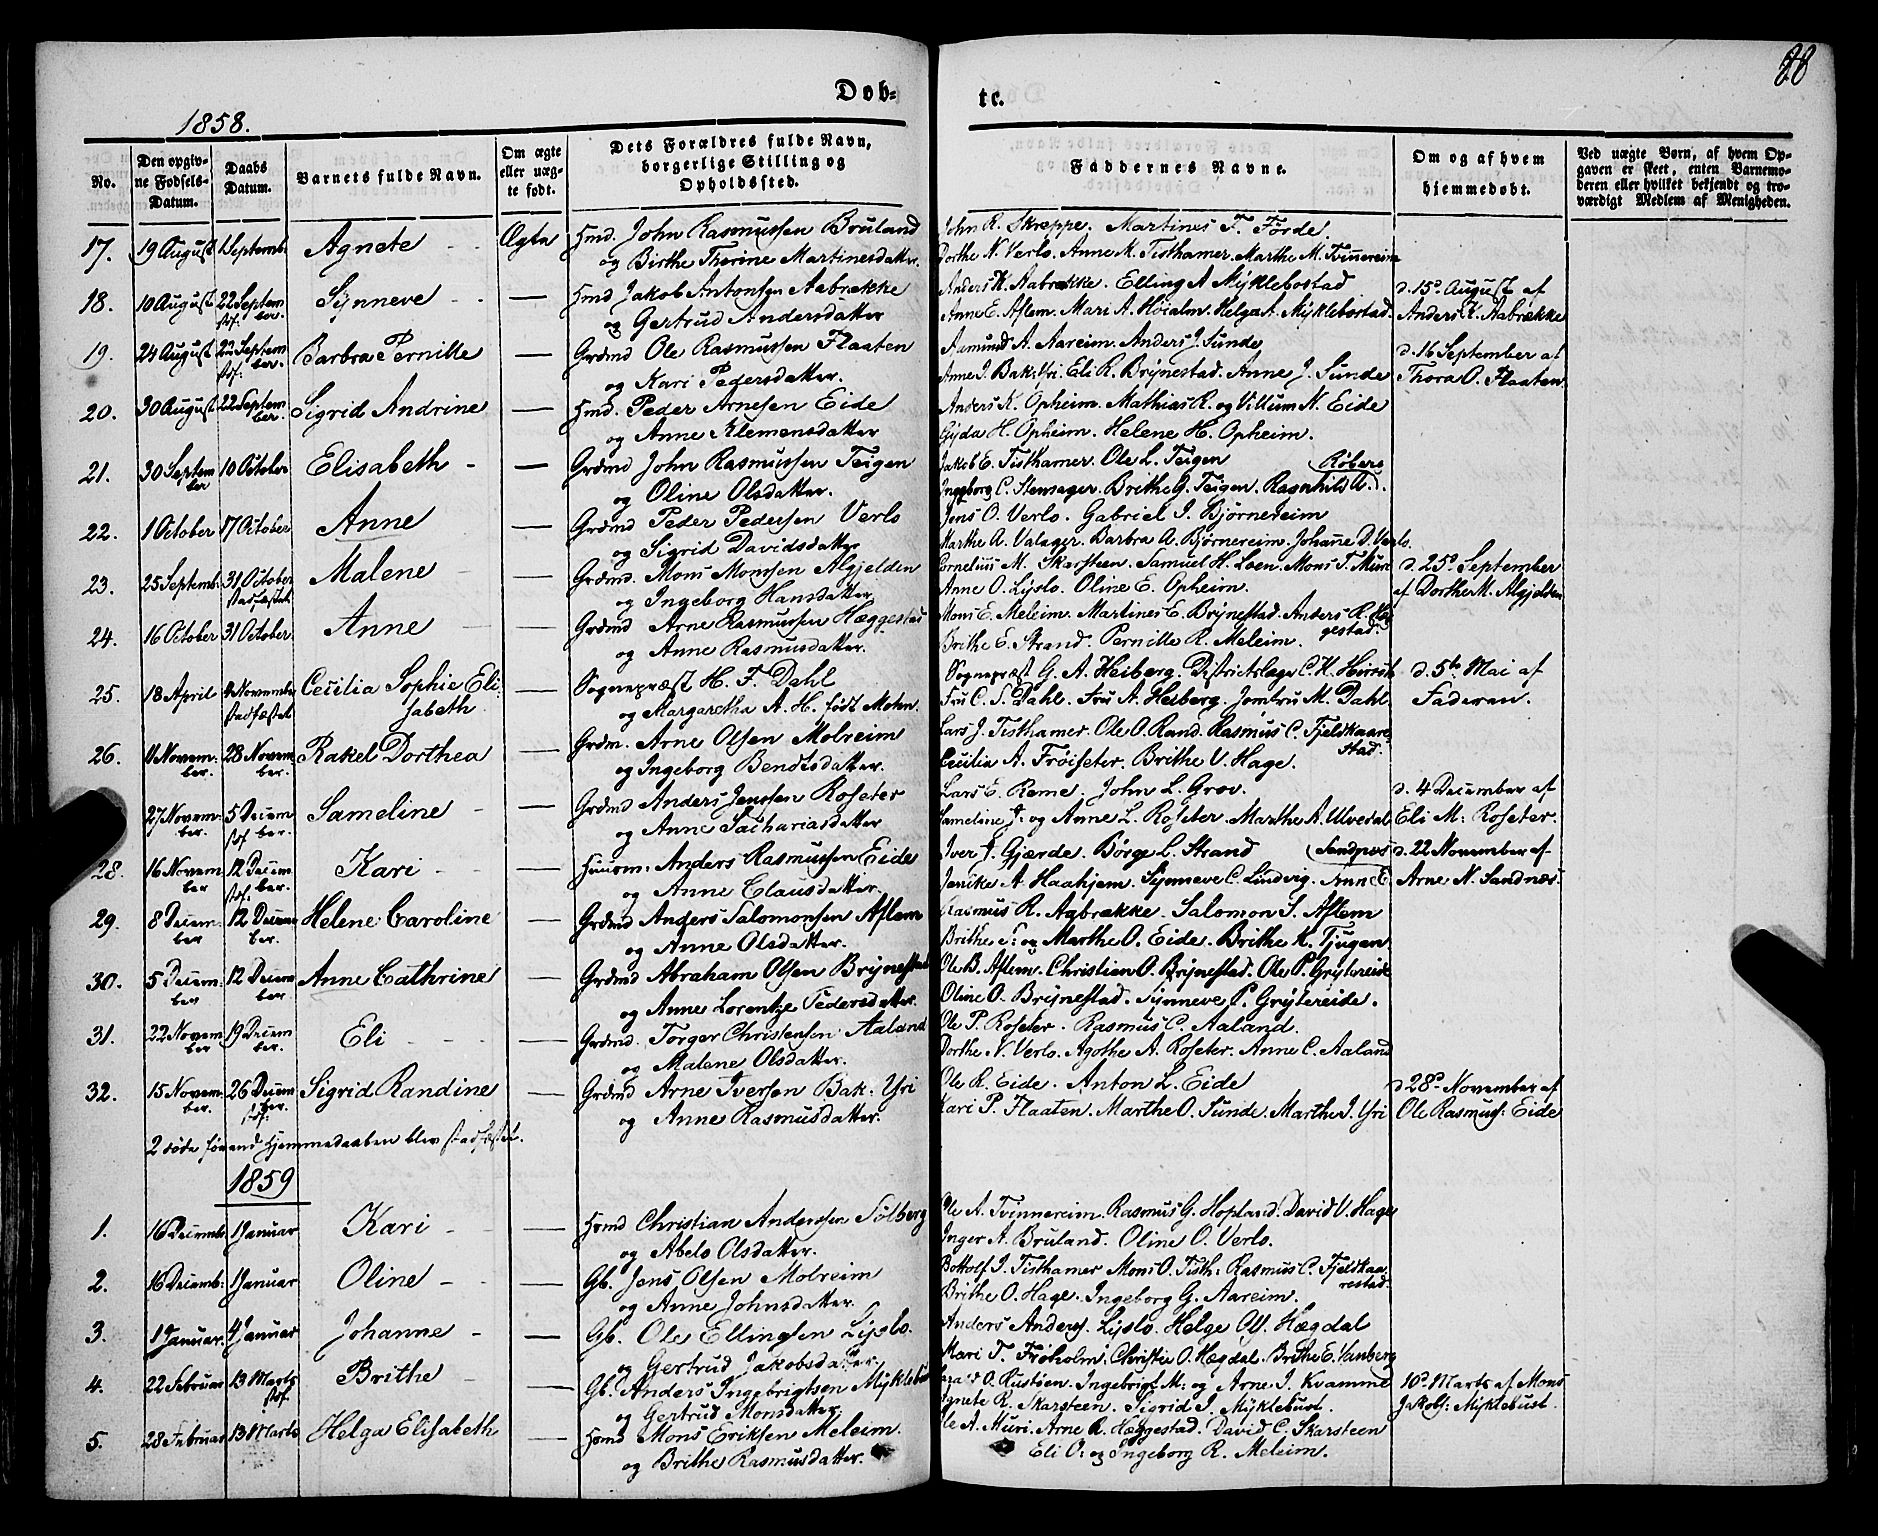 88
Døb-
te.
1858.
No.
Den opgiv-
ne Fødsels-
Datum.
Daabs
Datum.
Barnets fulde Navn.
Om ægte
eller uæg-
te født.
Dets Forældres fulde Navn,
borgerlige Stilling og
Opholdssted.
Faddernes Navne.
Om og af hvem
hjemmedøbt.
Ved uægte Børn, af hvem Op-
gaven er skeet, enten Barnemo-
deren eller hvilket bekjendt og tro-
værdigt Medlem af Menigheden.
17. 19 August 1 Septemb: Agnete Ægte Hmd. John Rasmussen Bruland
og Birthe Therine Martinesdatter.
John R. Skreppe. Martines T. Förde.
Dorthe N. Verlo. Anne M. Tisthamer. Marthe M. Tvinnereim
18. 10 August 22 Septem
stf: ber. Synneve — Hmd Jakob Antonsen Aabrække
og Gertrud Andersdatter
Anders K. Aabrække. Elling A Myklebostad
Anne E. Aflem. Mari A. Höialm. Helge A. Myklebostad.
d. 15d August af
Anders K. Aabrække
19. 24 August 22 Septem
stf: ber. Barbra Pernille — Grdmd Ole Rasmussen Flaaten
og Kari Pedersdatter.
Aamund A. Aareim. Anders J. Sunde
Anne I. Bak: Yri. Eli R. Brynestad. Anne J. Sunde
d. 16 September af
Thora O. Flaaten.
20. 30 August 22 Septem
ber. Sigrid Andrine — Hmd. Peder Arnesen Eide
og Anne Klemensdatter
Anders K. Opheim. Mathias R. og Villum N. Eide
Gyda H. Opheim. Helene H. Opheim.
21. 30 Septem
ber 10 October Elisabeth — Grdmd John Rasmussen Teigen
og Oline Olsdatter.
Jakob E. Tisthamer. Ole L. Teigen
Ingeborg C. Stensager. Brithe G. Teigen. Ragnhild A.
22. 1 October 17 October Anne — Grdmd Peder Pedersen Verlo
og Sigrid Davidsdatter
Jens O. Verlo. Gabriel I. Björnereim
Marthe A. Valager. Barbra A. Björnereim. Johane D. Verlo.
23. 25 Septemb: 31 October
stadfæstet Malene — Grdmd. Mons Monssen Algjelden
og Ingeborg Hansdatter
Cornelius M. Skarsteen. Samuel H. Loen. Mons T. Muri
Anne O. Lyslo. Oline E. Opheim.
d. 25d September
af Dorthe M. Algjelden
24. 16 October 31 October. Anne — Grdmd Arne Rasmussen Hæggestad
og Anne Rasmusdatter.
Mons E. Meleim. Martines E. Brynestad. Anders R. Hæg
gestad.
Brithe E. Strand. Pernille R. Meleim.
25. 18 April 4 November
stadfæstet Cecilia Sophie Eli-
sabeth. — Sognepræst H. F. Dahl
og Margaretha A. H. født Mohn.
Sognepræst G. A. Heiberg. Districtslæge C. H.
Fru C. S. Dahl. Fru A. Heiberg. Jomfru M. Dahl.
d. 5te Mai af
Faderen.
26. 28 Novem
ber. Rakel Dorthea — Grdm. Arne Olsen Molreim
og Ingeborg Bendtsdatter.
Lars J. Tisthamer. Ole O. Rand. Rasmus C. Fjeldkaare
stad.
Cecilia A. Fröiseter. Brithe V. Hage.
27 Novem-
ber. 5 Decem
stf ber. Sameline — Grdmd Anders Jenssen Roseter
og Anne Sachariasdatter
Lars E. Reme. John L. Grov.
Sameline J. og Anne L. Roseter. Marthe A. Ulvedal
d. 4 December af
Eli M: Roseter.
28. 16 Novem
ber 12 Decem
stf: ber. Kari — Huusm: Anders Rasmussen Eide
og Anne Clausdatter.
Iver J. Gjærde. Börge L. Strand
Jenike A. Haahjem. Synneve C. Lindvig. Anne E.
d. 22 November af
Arne N. Sandnes.
29. 8 Decem-
ber 12 Decem
ber. Helene Caroline — Grdmd Anders Salomonsen Aflem
og Anne Olsdatter.
Rasmus R. Aabrække. Salomon S. Aflem
Brithe S: og Marthe O. Eide. Brithe K. Tjugen
30. 5 Decem:
ber 12 Decem
ber Anne Cathrine — Grdmd Abraham Olsen Brynestad
og Anne Lorentze Pedersdatter.
Ole B. Aflem. Christian O. Brynestad. Ole P. Grytereide
Oline O. Brynestad. Synneve P. Grytereide.
31. 22 Novem
ber 19 Decem
ber. Eli — Grdmd. Torger Christensen Aaland
og Malene Olsdatter.
Ole P. Roseter. Rasmus C. Aaland.
Dorthe N. Verlo. Agothe A. Roseter. Anne C. Aaland
32. 15 Novem-
ber. 26 Decem
ber.
stf: Sigrid Randine — Grdmd Arne Iversen Bak: Yri
og Anne Rasmusdatter.
Ole R. Eide. Anton L. Eide
Kari P. Flaaten. Marthe O. Sunde. Marthe I. Yri
d. 28d November af
Ole Rasmuss: Eide
2 døde förend Hjemmedaaben blev stadfæstet.
1859
1. 16 Decemb: 1 Januar Kari — Hmd Christian Anderssen Solberg
og Abelo Olsdatter.
Ole A. Tvinnereim. Rasmus G. Hopland. David V. Hage
Inger A. Bruland. Oline O. Verlo.
2. 16 Decemb: 1 Januar Oline — Gb. Jens Olsen Molreim
og Anne Johnsdatter.
Bottolf J. Tisthamer Mons O. Tisth: Rasmus C. Fjeldkaa-
restad.
Brithe O. Hage. Ingeborg G. Aareim.
3. 1 Januar. 4 Januar Johanne — Gb. Ole Ellingsen Lyslo.
og Gertrud Jakobsdatter.
Anders Anders. Lyslo. Helge Ols. Hægdal
Mari T. Fröholm. Christie O. Hægdal. Brithe E. Vanberg
4. 22 Februar 13 Marts
stf. Brithe — Gb. Anders Ingebrigtsen Myklebust
og Gertrud Monsdatter.
O. Rustöen. Ingebrigt M: og Arne I. Kvamme
Agnete R. Skarsteen. Sigrid I. Myklebust.
10d Marts af Mons
Jakobs: Myklebust.
5. 28 Februar 13 Marts Helga Elisabeth — Hmd Mons Eriksen Meleim.
og Brithe Rasmusdatter.
Ole A. Muri. Arne R. Hæggestad. David C. Skarsteen
Eli O: og Ingeborg R. Meleim.